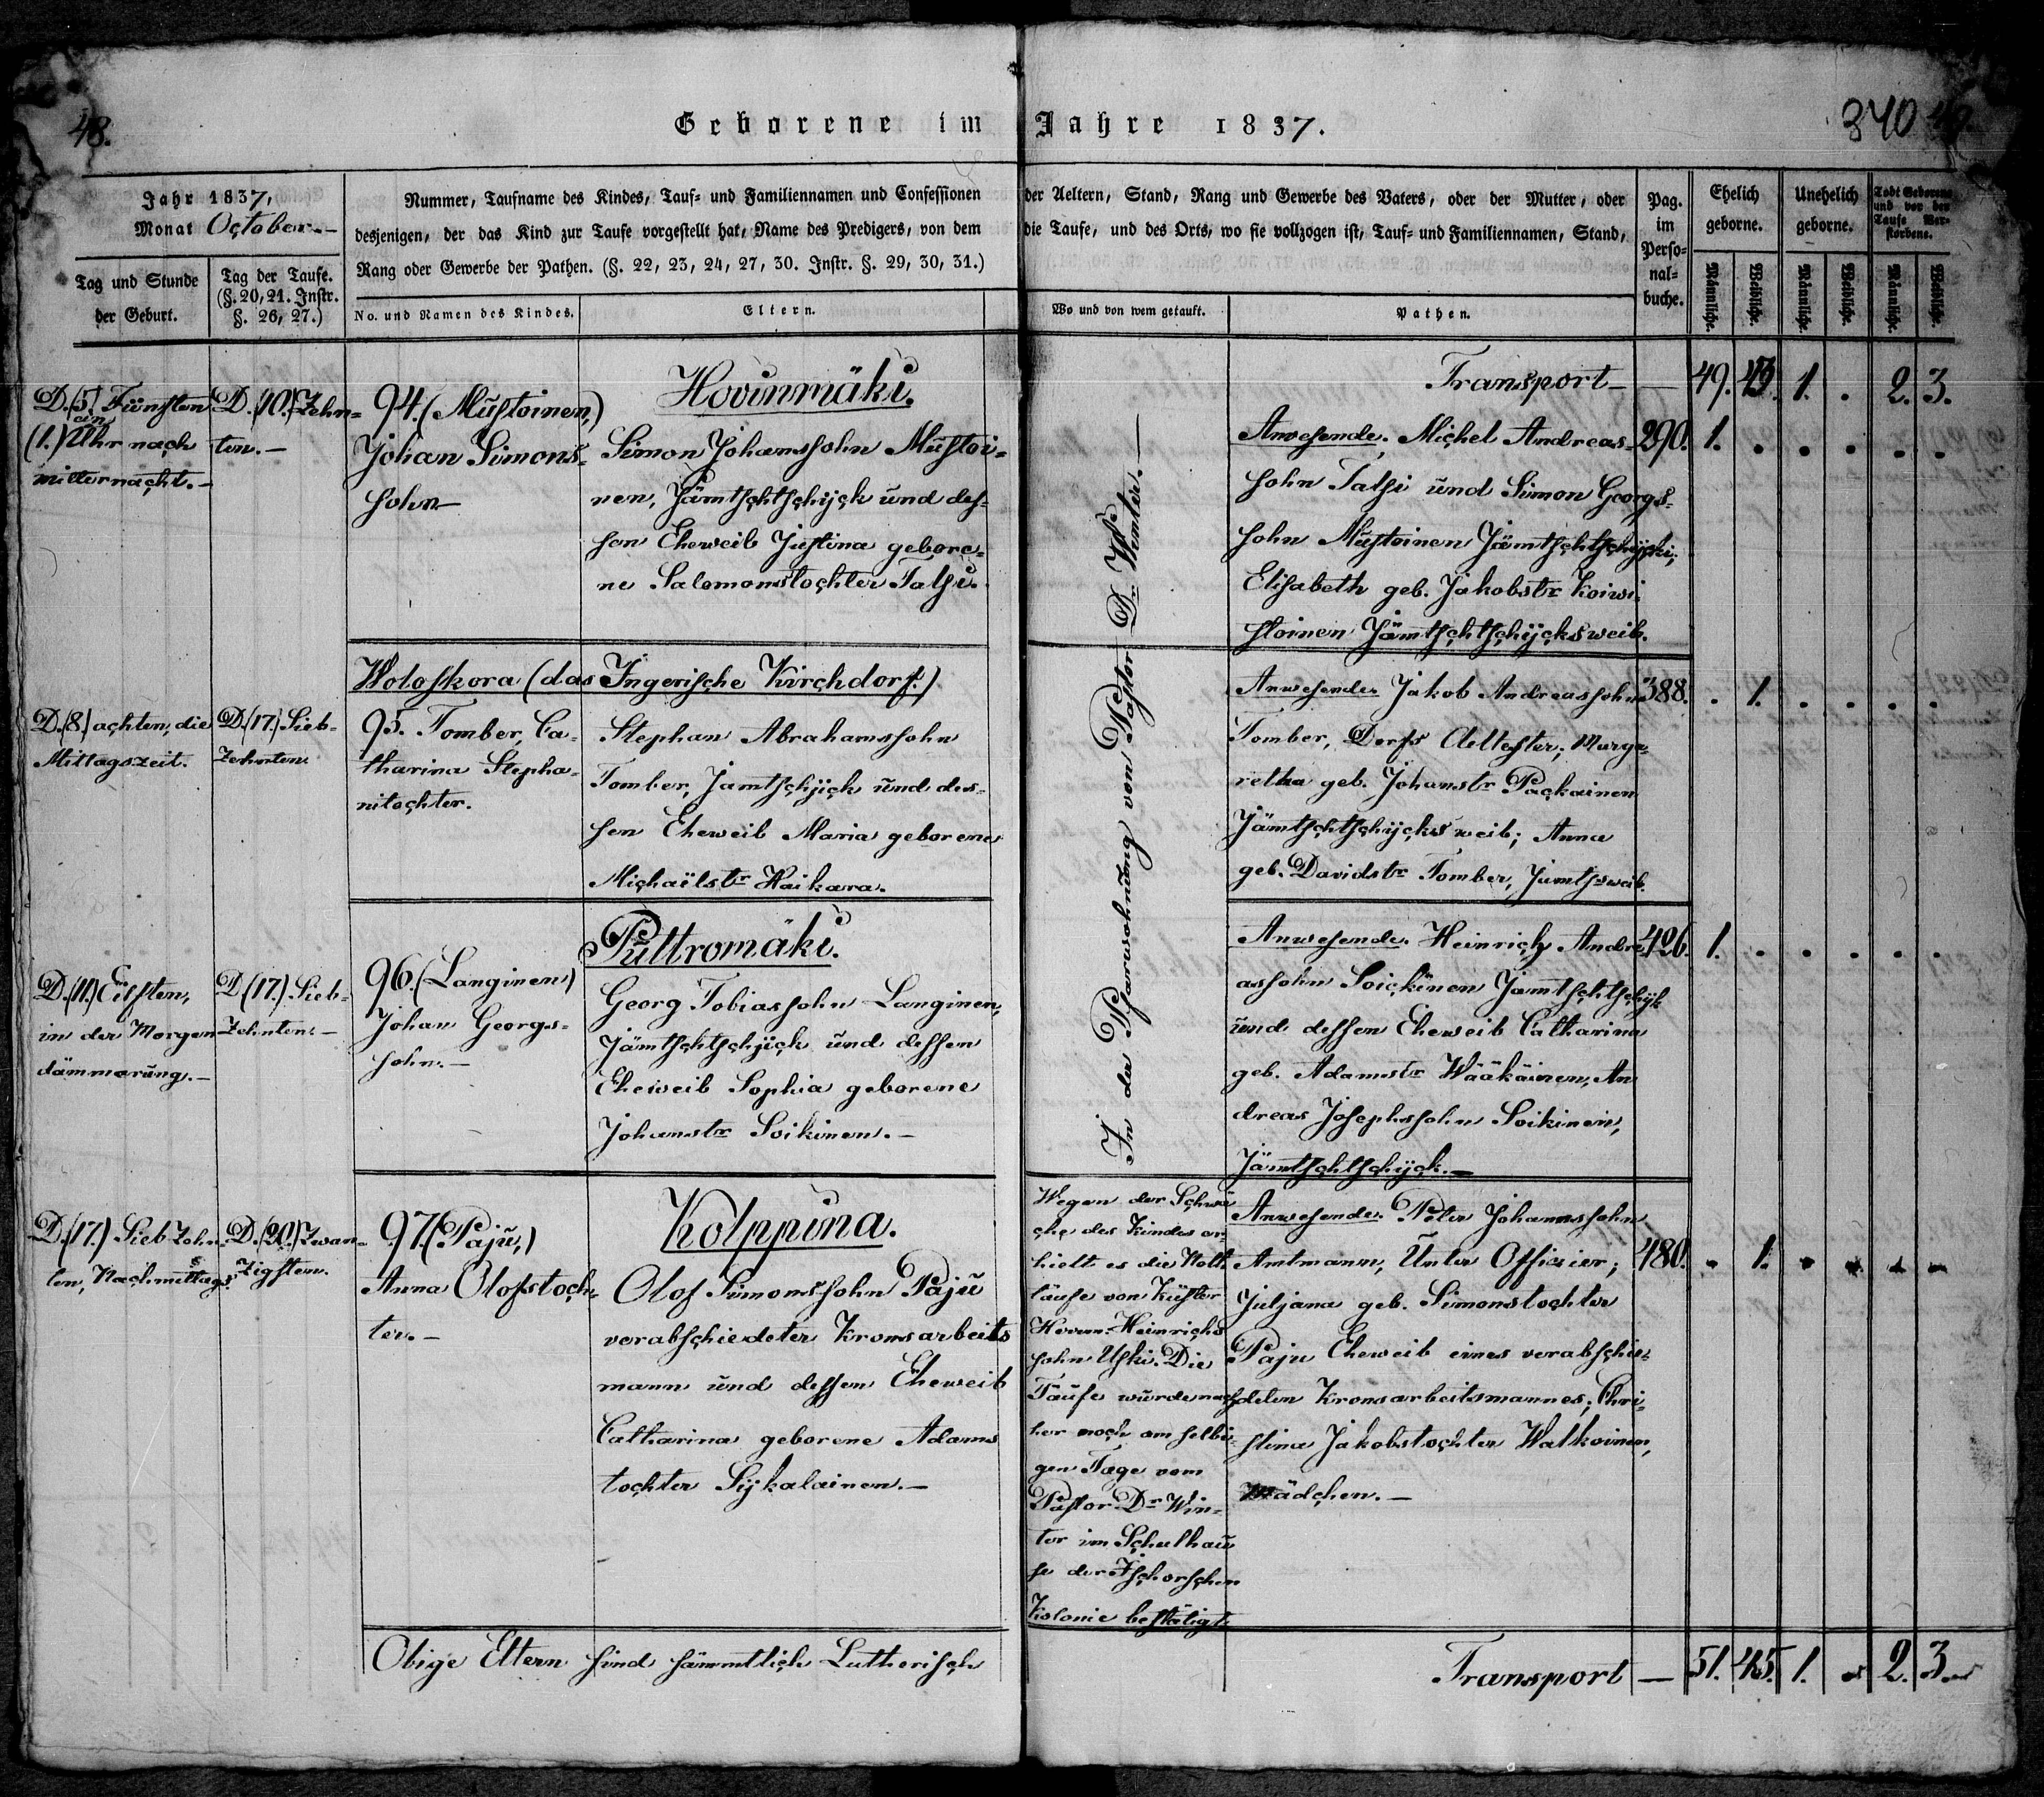 48.
Geborene im Jahre 1837.
340
Jahr 1837,
Monat October.
Tag und Stunde
der Geburt.
Tag der Taufe.
(§. 20, 21. Instr.
§. 26, 27.)
Nummer, Taufname des Kindes, Tauf= und Familiennamen und Confessionen der Aeltern, Stand, Rang und Gewerbe des Vaters, oder der Mutter, oder
desjenigen, der das Kind zur Taufe vorgestellt hat, Name des Predigers, von dem die Taufe, und des Orts, wo sie vollzogen ist, Tauf= und Familiennamen, Stand,
Rang oder Gewerbe der Pathen. (§. 22, 23, 24, 27, 30. Instr. §. 29, 30, 31.)
No. und Namen des Kindes.
Eltern.
Wo und von wem getauft.
Pathen.
Pag.
im
Perso=
nal=
buche.
Ehelich
geborne.
Unehelich
geborne.
Todt Geborene
und vor der
Taufe Ver=
storbene.
Männliche.
Weibliche.
Männliche.
Weibliche.
Männliche.
Weibliche.
Transport — 49. 43. 1. . 2. 3.
D. (5.) Fünften
(1.) ein Uhr nach
mitternacht.—
D. (10.) Zehn=
ten.—
94. (Mustoinen,)
Johan Simons=
sohn—
Hovinmäki.
Simon Johanssohn Mustoi=
nen, Jämtschtschijck und des=
sen Eheweib Justina gebore=
ne Salomonstochter Tatsi.
In der Pfarwohnung von Pastor Dr. Winter.—
Anwesende. Michel Andreas=
sohn Tatsi und Simon Georgs=
sohn Mustoinen Jämtschtschijcki;
Elisabeth geb. Jakobstr Koiwi=
stoinen Jämtschtschijcksweib.
290. 1. . . . . .
Woloskora (das Ingerische Kirchdorf.)
D. (8.) achten, die
Mittagszeit.
D. (17.) Sieb=
zehnten.
95. Tomber, Ca=
tharina Stepha=
nitochter.
Stephan Abrahamssohn
Tomber, Jamtschjick und des=
sen Eheweib Maria geborene
Michaëlstr Haikara.
Anwesende Jakob Andreassohn
Tomber, Dorfs Aeltester; Marga=
retha geb. Johanstr Packainen
Jämtschtschijcks weib; Anna
geb. Davidstr Tomber, Jamtsweib.
388. . 1. . . . .
D. (11.) Eilften,
in der Morgen
dämmerung.—
D. (17.) Sieb=
zehnten.—
96. (Langinen)
Johan Georgs=
sohn.—
Pultromäki.
Georg Tobiassohn Langinen,
Jämtschtschjick und dessen
Eheweib Sophia geborene
Johanstr Soikinen.—
Anwesende. Heinrich Andre
assohn Soickinen Jamtschtschijk
und dessen Eheweib Catharina
geb. Adamstr Wääkäinen, An
dreas Josephssohn Soikinein,
Jämtschtschijck.—
426. 1. . . . . .
D. (17.) Siebzehn=
ten, Nachmittags.
D. (20.) Zwan=
zigsten.
97. (Paju,)
Anna Olofstoch=
ter.—
Kolppina.
Olof Simonssohn Paju
verabschiedeter Kronsarbeits
mann und dessen Eheweib
Catharina geborene Adams
tochter Sijkalainen.—
Wegen der Schwä
che des Kindes er
hielt es die Noth
taufe von Küster
Herrn Heinrichs
sohn Uski. Die
Taufe wurde nach
her noch am selbi=
gen Tage vom
Pastor Dr Win=
ter im Schulhau
se der Ischorschen
Kolonie bestätigt.
Anwesende. Peter Johannssohn
Amtmann, Unter Officier;
Juljana geb. Simonstochter
Paju Eheweib eines verabschie=
deten Kronsarbeitsmannes; Chri=
stina Jakobstochter Walkoinen,
Mädchen.—
480. . 1. . . . .
Obige Eltern sind sämmtlich Lutherisch
Transport — 51. 45. 1. . 2. 3.